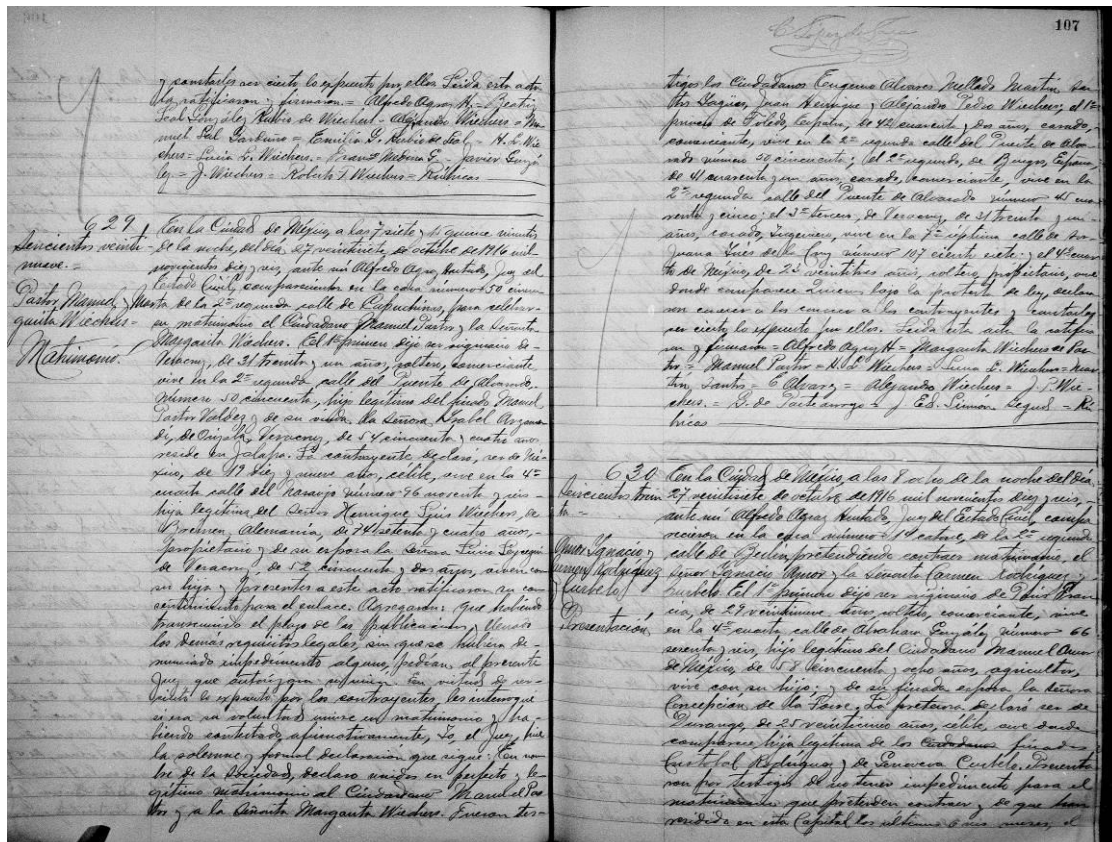 y constarles ser cierto lo expuesto por ellos. Leída esta acta
la ratificaron y firmaron = Alfredo Agraz H. = Beatriz
Leal González Rubio de Wiechers = Alejandro Wiechers = Ma-
nuel Leal Garduño = Emilia G. Rubio de Leal = H. L. Wie-
chers = Luisa L. Wiechers = Franz Medina G. = Javier Gonzá-
lez = J. Wiechers = Robert Wiechers = Rúbricas
629
Seiscientos veinti-
nueve. =
Pastor Manuel y Mar-
garita Wiechers =
Matrimonio.
En la Ciudad de Méjico a las 7 siete y 15 quince minutos
de la noche, del día 27 veintisiete de octubre de 1916 mil
novecientos diez y seis, ante mí Alfredo Agraz Hurtado, Juez del
Estado Civil, comparecieron en la casa número 50 cincuen-
ta de la 2ª segunda calle de Capuchinas, para celebrar
su matrimonio el Ciudadano Manuel Pastor y la Señorita
Margarita Wiechers. El 1º primero dijo ser originario de
Veracruz, de 31 treinta y un años, soltero, comerciante,
vive en la 2ª segunda calle del Puente de Alvarado,
número 50 cincuenta, hijo legítimo del finado Manuel
Pastor Valdez y de su viuda la señora Isabel
de Orizaba, Veracruz, de 54 cincuenta y cuatro años
reside en Jalapa. La contrayente declaró, ser de Mé-
xico, de 19 diez y nueve años, célibe, vive en la 4ª
cuarta calle del Naranjo número 96 noventa y seis
hija legítima del Señor Henrique Luis Wiechers, de
Bremen Alemania, de 74 setenta y cuatro años,
propietario y de su esposa la señora Luisa
de Veracruz, de 52 cincuenta y dos años, viven con
su hija y presentes a este acto ratificaron su con-
sentimiento para el enlace. Agregaron: que habiendo
transcurrido el plazo de las publicaciones y llenados
los demás requisitos legales, sin que se hubiera de-
nunciado impedimento alguno, pedían al presente
Juez que autorizara su unión. En virtud de ser
cierto lo expuesto por los contrayentes les interrogué
si era su voluntad unirse en matrimonio y ha-
biendo contestado afirmativamente, Yo, el Juez, hice
la solemne y formal declaración que sigue: En nom-
bre de la Sociedad, declaro unidos en perfecto y le-
gítimo matrimonio al Ciudadano Manuel Pas-
tor y a la Señorita Margarita Wiechers. Fueron tes-
107
tigos los Ciudadanos Eugenio Alvarez Mellado Martín San-
tos Juan Henrique y Alejandro Pedro Wiechers; el 1º
primero de Toledo, España, de 42 cuarenta y dos años, casado,
comerciante, vive en la 2ª segunda calle del Puente de Alva-
rado número 50 cincuenta; el 2º segundo, de Burgos, España,
de 41 cuarenta y un años, casado, comerciante, vive en la
2ª segunda calle del Puente de Alvarado número 45 cua-
renta y cinco; el 3º tercero, de Veracruz, de 31 treinta y un
años, casado, Ingeniero, vive en la 7ª séptima calle de Sor
Juana Inés de la Cruz número 107 ciento siete; y el 4º cuar-
to de Méjico, de 23 veintitrés años, soltero, propietario, vive
donde comparece. Quienes bajo la protesta de ley, declara-
ron conocer a los contrayentes y constarles
ser cierto lo expuesto por ellos. Leída esta acta la ratifica-
ron y firmaron = Alfredo Agraz H = Margarita Wiechers de Pas-
tor = Manuel Pastor = H. L. Wiechers = Luisa L. Wiechers = Mar-
tín Santos = E Alvarez = Alejandro Wiechers = J. P. Wie-
chers. = = J. Ed. Simón = Rú-
bricas
630
Seiscientos trein-
ta =
Amor Ignacio y
Carmen Rodríguez
y Curbelo
Presentación
En la Ciudad de Méjico a las 8 ocho de la noche del día
27 veintisiete de octubre de 1916 mil novecientos diez y seis,
ante mí Alfredo Agraz Hurtado, Juez del Estado Civil, compa-
recieron en la casa número 14 catorce, de la 2ª segunda
calle de Berlín, pretendiendo contraer matrimonio, el
señor Ignacio Amor y la Señorita Carmen Rodríguez y
Curbelo. El 1º primero dijo ser originario de París Fran-
cia, de 29 veintinueve años, soltero, comerciante, vive
en la 4ª cuarta calle de Abraham González número 66
sesenta y seis, hijo legítimo del Ciudadano Manuel Amor
de Méjico, de 58 cincuenta y ocho años, agricultor,
vive con su hijo; y de su finada esposa la señora
Concepción de la Torre. La pretensa declaró ser de
Durango, de 25 veinticinco años, célibe, vive donde
comparece, hija legítima de los Ciudadanos finados
Cristobal Rodríguez y de Genoveva Curbelo. Presenta-
ron por testigos de no tener impedimento para el
matrimonio que pretenden contraer y de que han
residido en esta Capital los últimos 6 seis meses, el